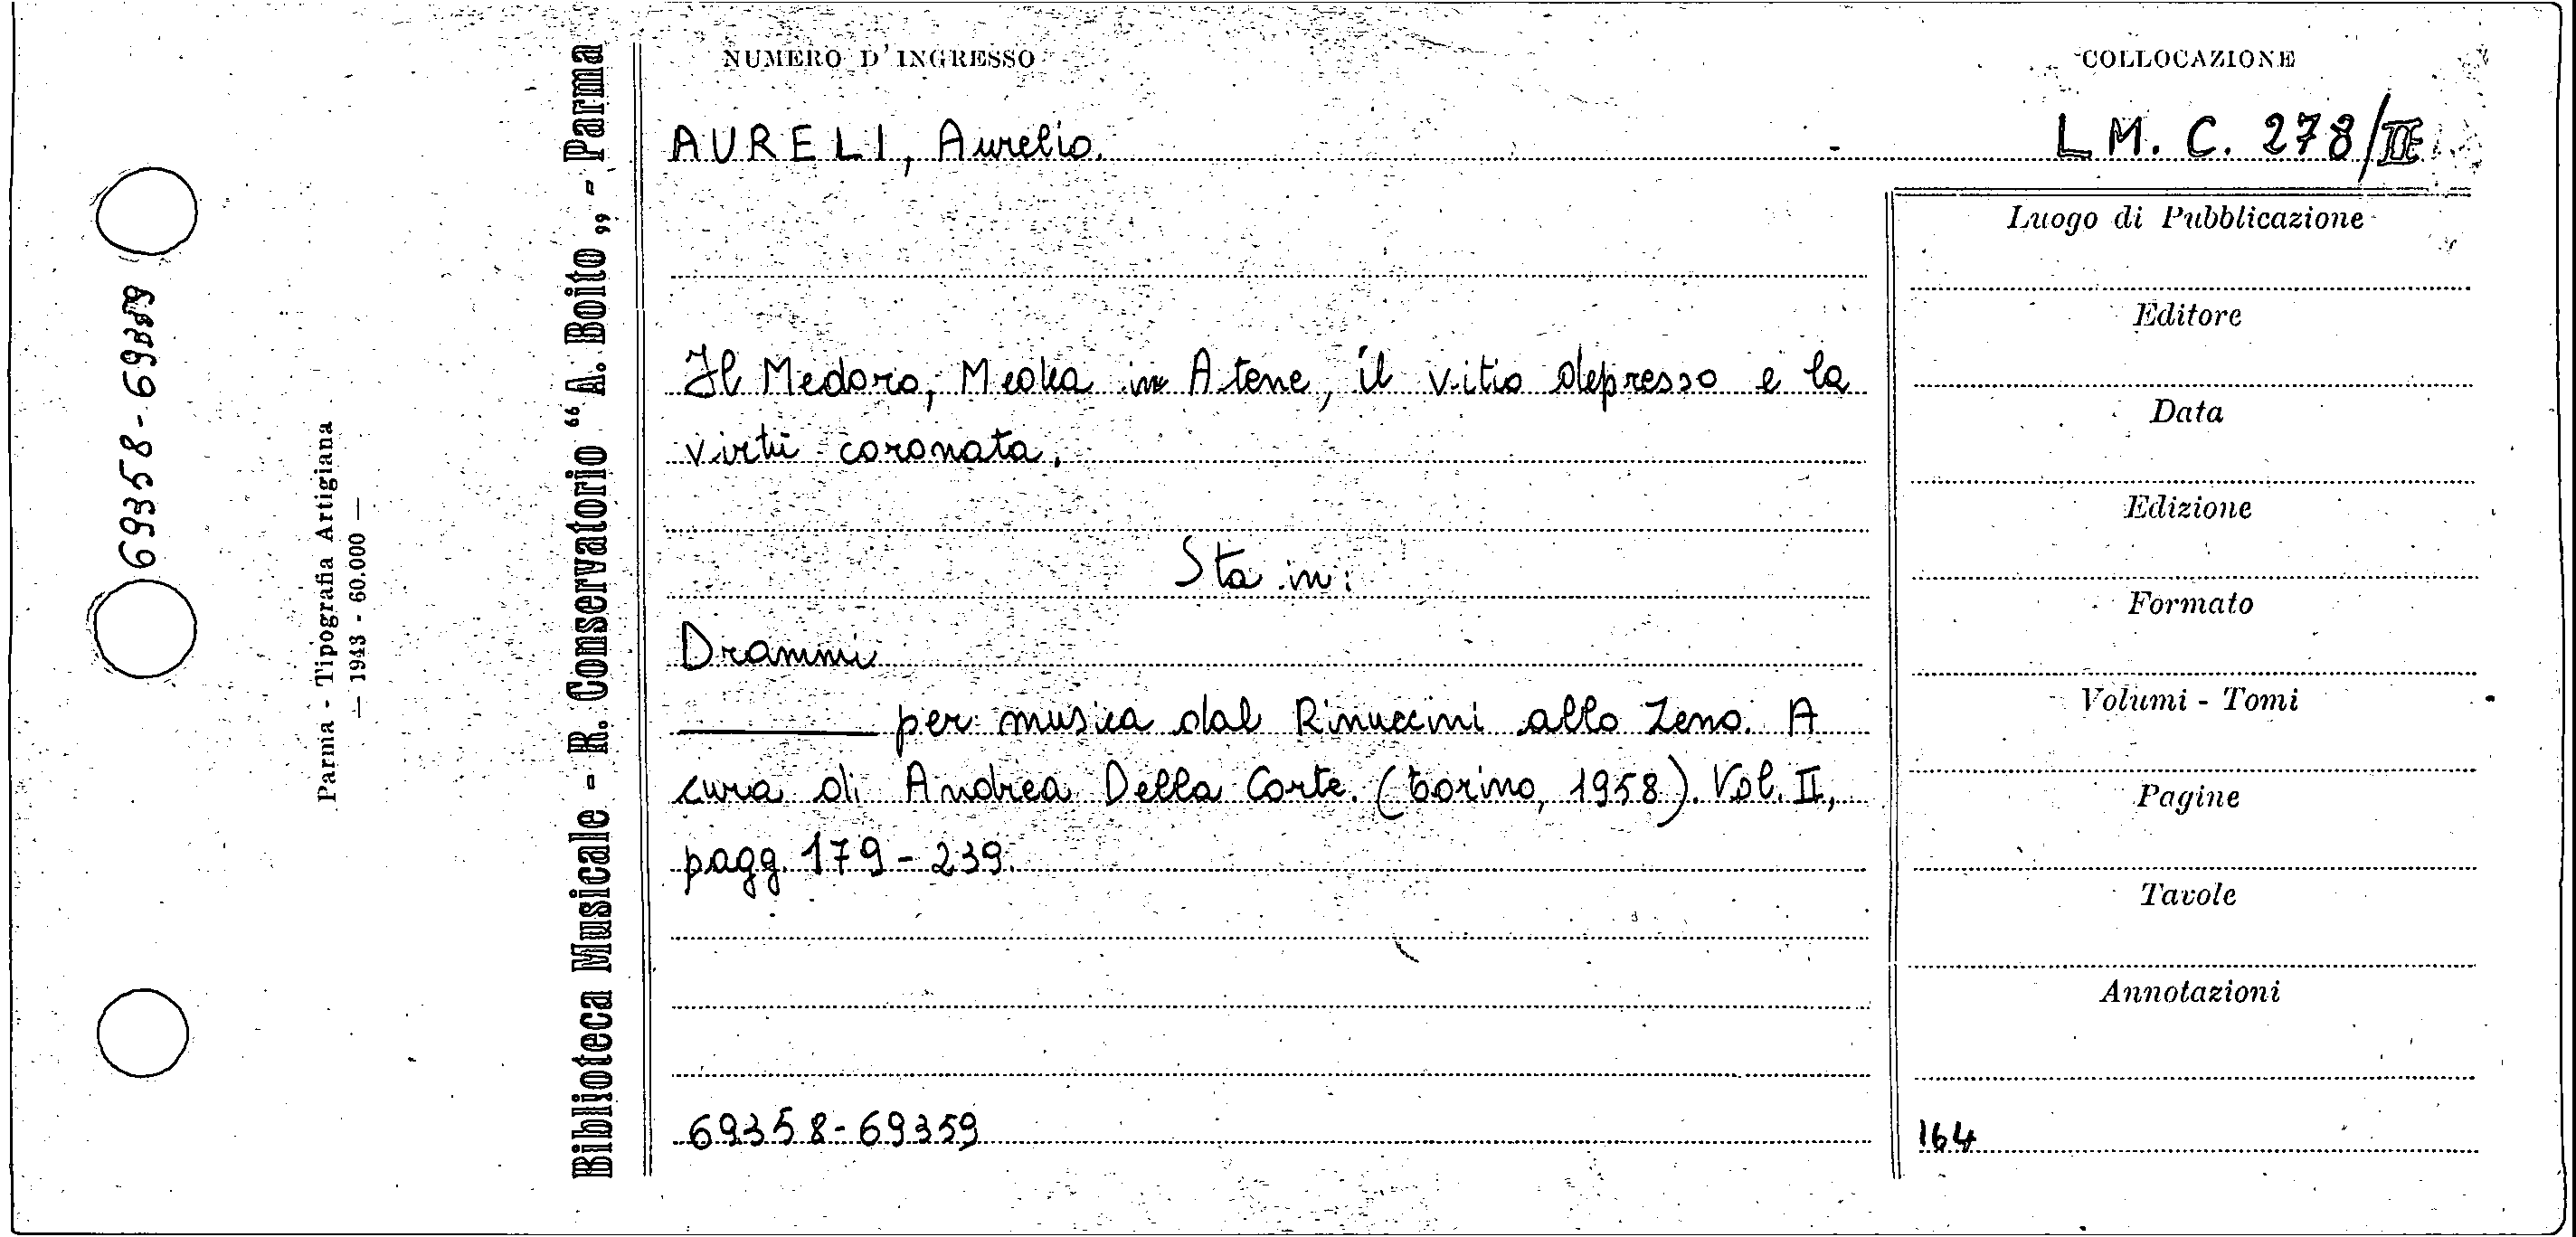 69358-69359
Parma - Tipografia Artigiana
— 1943 - 60.000 —
Biblioteca Musicale - R. Conservatorio “A. Boito„ - Parma
NUMERO D'INGRESSO
COLLOCAZIONE
AURELI, Aurelio.
L M. C. 278/II
Il Medoro, Medea in Atene, il vitio depresso e la
virtù coronata.
Sta in:
Drammi
per musica dal Rinuccini allo Zeno. A
cura di Andrea Della Corte. (Torino, 1958). Vol. II,
pagg. 179-239.
69358-69359
Luogo di Pubblicazione
Editore
Data
Edizione
Formato
Volumi - Tomi
Pagine
Tavole
Annotazioni
164